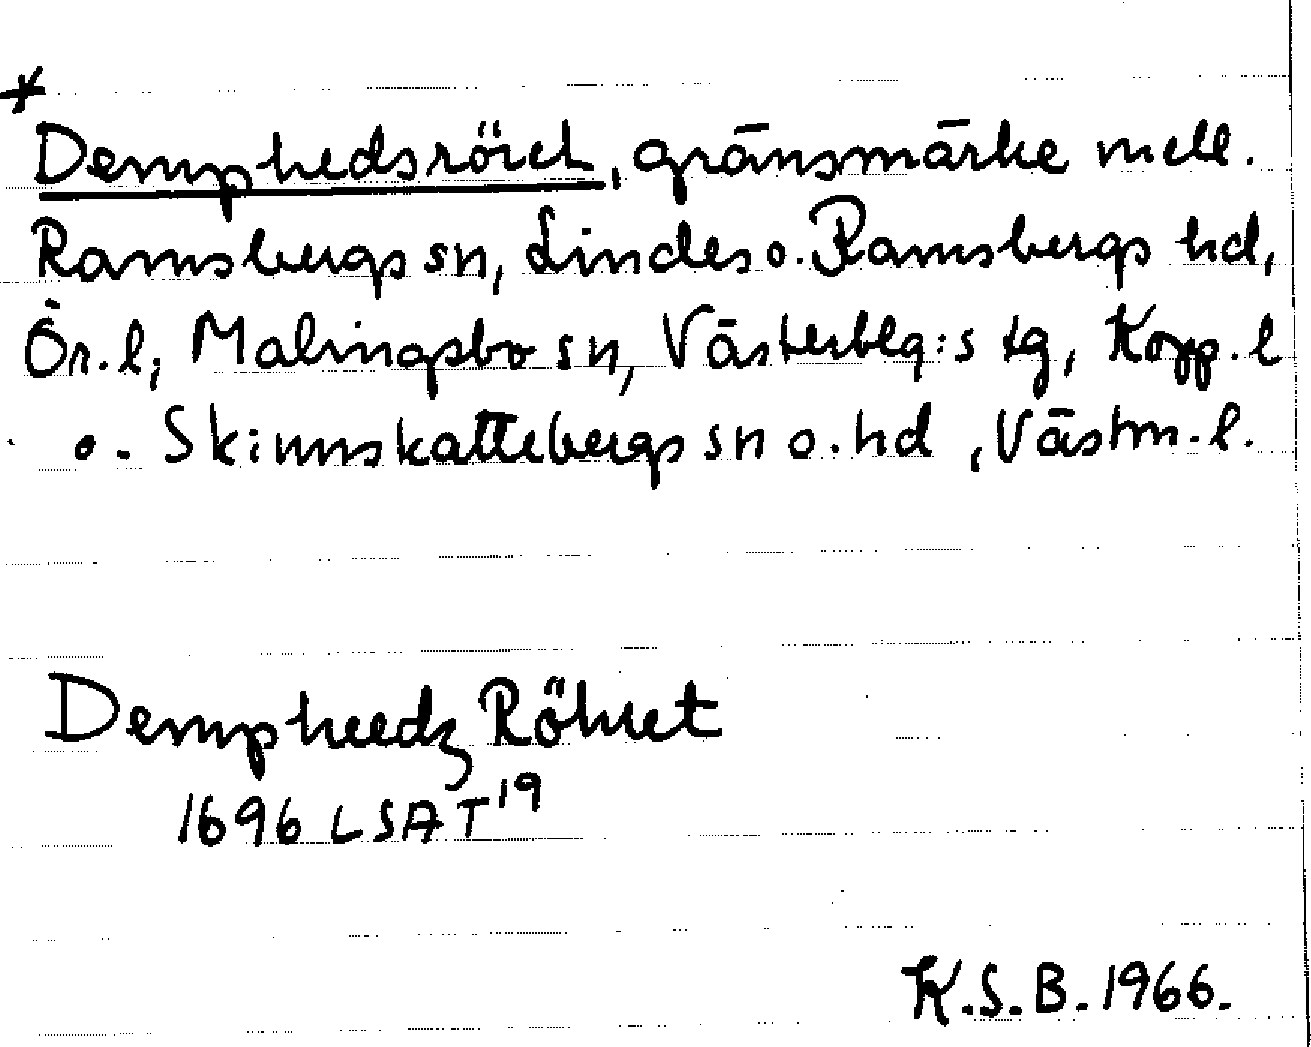 *
Demphedsröret, gränsmärke mell.
Ramsbergs sn, Lindes o. Ramsbergs hd,
Ör. l, Malingsbo sn, Västerblg:s tg, Kopp. l
o. Skinnskattebergs sn o. hd, Västm. l.
Dempheedz Röhret
1696 LSA T19
K.S.B. 1966.